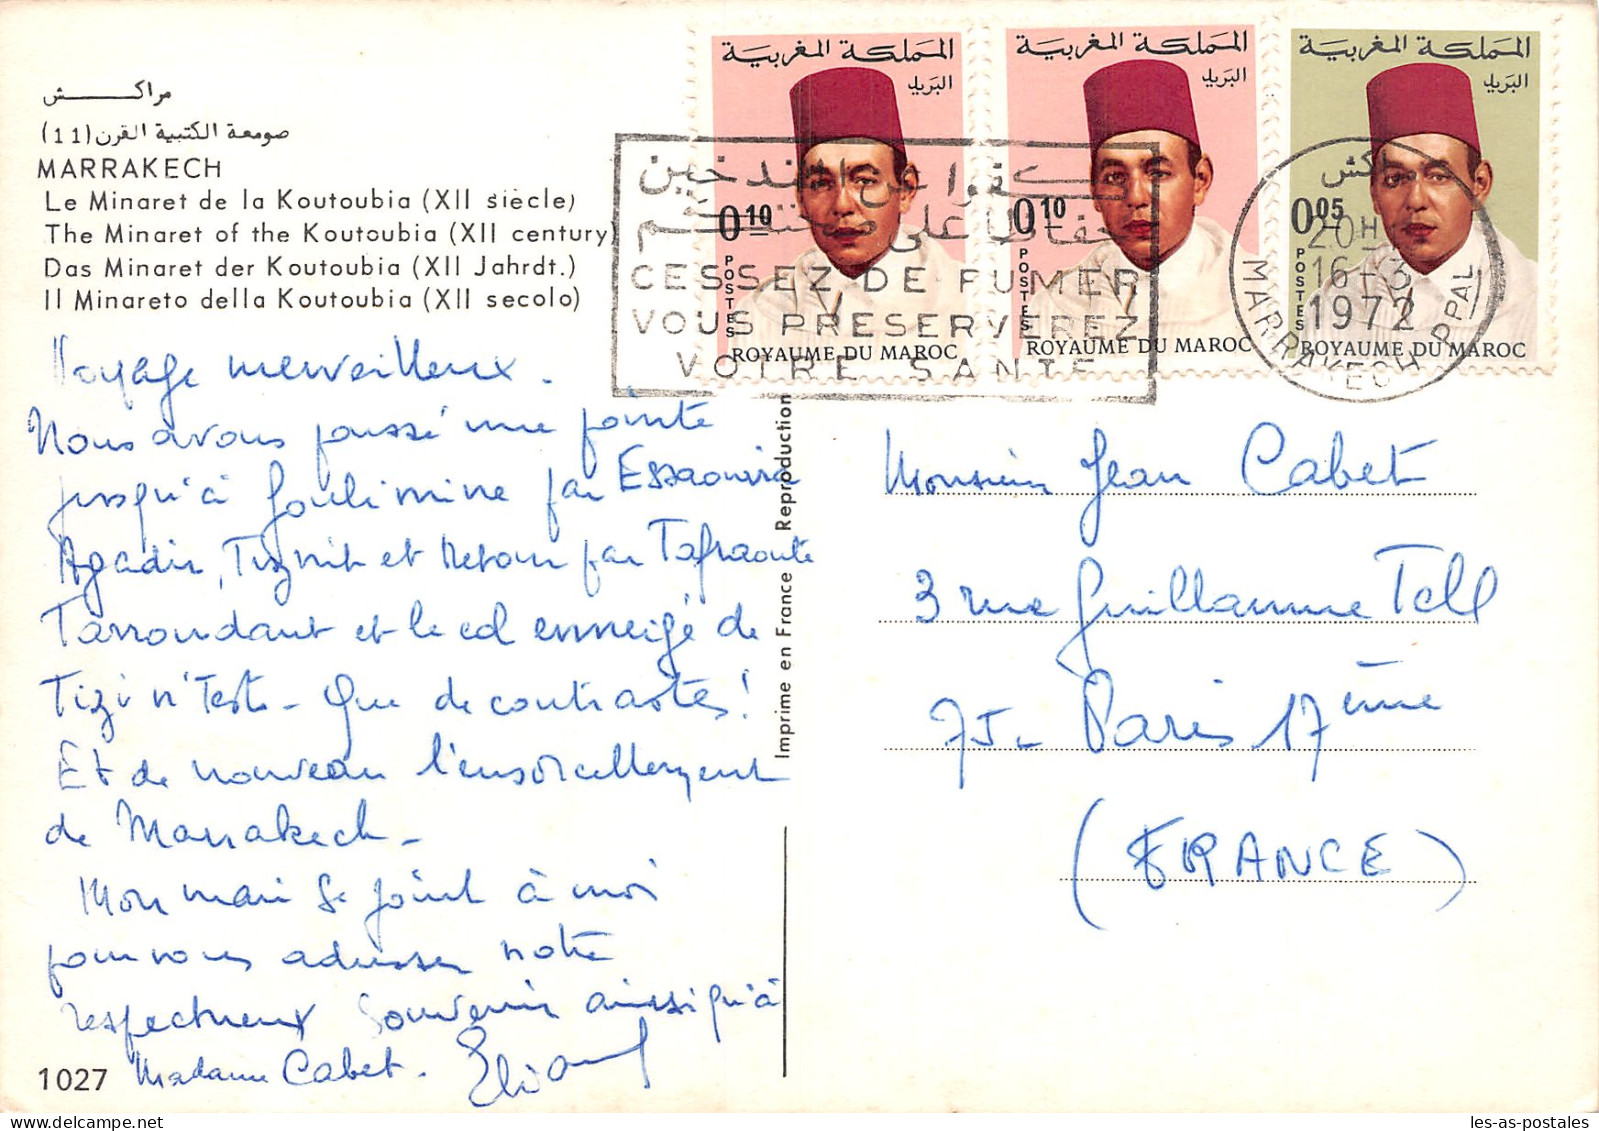 مراكش
صومعة الكتبية القرن (11)
MARRAKECH
Le Minaret de la Koutoubia (XII siècle)
The Minaret of the Koutoubia (XII century)
Das Minaret der Koutoubia (XII Jahrdt.)
Il Minareto della Koutoubia (XII secolo)
المملكة المغربية
البريد
0,10
POSTES
ROYAUME DU MAROC
المملكة المغربية
البريد
0,10
POSTES
ROYAUME DU MAROC
المملكة المغربية
البريد
0,05
POSTES
ROYAUME DU MAROC
كفوا عن التدخين
حفاظا على صحتكم
CESSEZ DE FUMER
VOUS PRESERVEREZ
VOTRE SANTE
مراكش
20H
16-3
1972
MARRAKECH PPAL
Voyage merveilleux.
Nous avons poussé une pointe
jusqu'à Goulimine par Essaouira
Agadir, Tiznit et retour par Tafraoute
Tarroudant et le col enneigé de
Tizi n'Test - Que de contrastes!
Et de nouveau l'ensorcellement
de Marrakech -
Mon mari se joint à moi
pour vous adresser notre
respectueux souvenir ainsi qu'à
Madame Cabet.
1027
Imprimé en France Reproduction
Monsieur Jean Cabet
3 rue Guillaume Tell
75 - Paris 17ème
(FRANCE)
les-as-postales